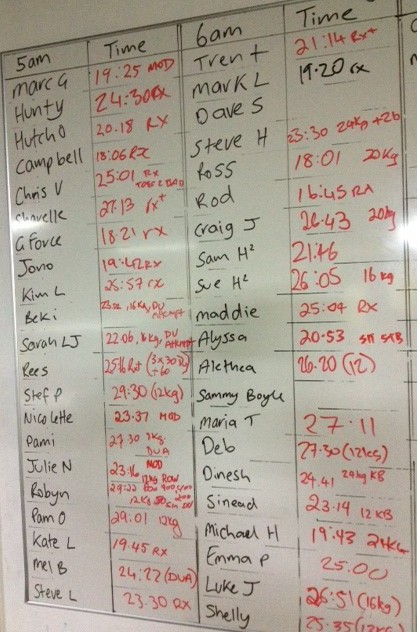 5am Time 6am Time
Marc G 19:25 MOD Trent 21:14 Rx+
Hunty 24:30 RX Mark L 19.20 rx
Hutch O 20.18 RX Dave S
Campbell 18:06 RX Steve H 23:30 24kg +2b
Chris V 25:01 Rx Ross 18:01 20kg
27.13 rx+ Rod 16:45 RX
G Force 18.21 rx Craig J 26:43 20kg
Jono 19:42 RX Sam H² 21:46
Kim L 25:57 rx Sue H² 26:05 16kg
Beki 16kg, DU maddie 25:04 RX
Sarah LJ 22.06, 16kg, DU Attempt Alyssa 20.53
Rees Alethea 26.20 (12)
Stef P 29:30 (12kg) Sammy Boyle
Nicolette 23:37 MOD Maria T 27:11
Pami 27 30 DUA Deb 27:30 (12kg)
Julie N 23:16 MOD Dinesh 24.41 24kg KB
Robyn 12kg Row Sinead 23.14 12 KB
Pam O 29.01 12kg Michael H 19:43 24kg
Kate L 19.45 RX Emma P 25.00
Mel B 24:22 (DUA) Luke J 26:51 (16kg)
Steve L 23.30 RX Shelly 25:35 (12kg)